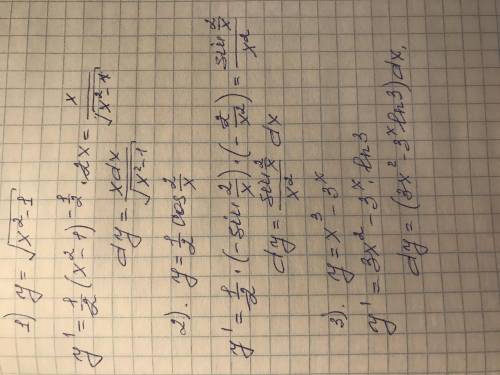 1) y = √(x²-1)
y' = 1/2 (x²-1)^(-1/2) · 2x = x/√(x²-1)
dy = xdx/√(x²-1)
2). y = 1/2 cos 2/x
y' = 1/2 · (-sin 2/x) · (-2/x²) = sin 2/x / x²
dy = sin 2/x / x² dx
3). y = x³ - 3^x
y' = 3x² - 3^x · ln3
dy = (3x² - 3^x ln3) dx.